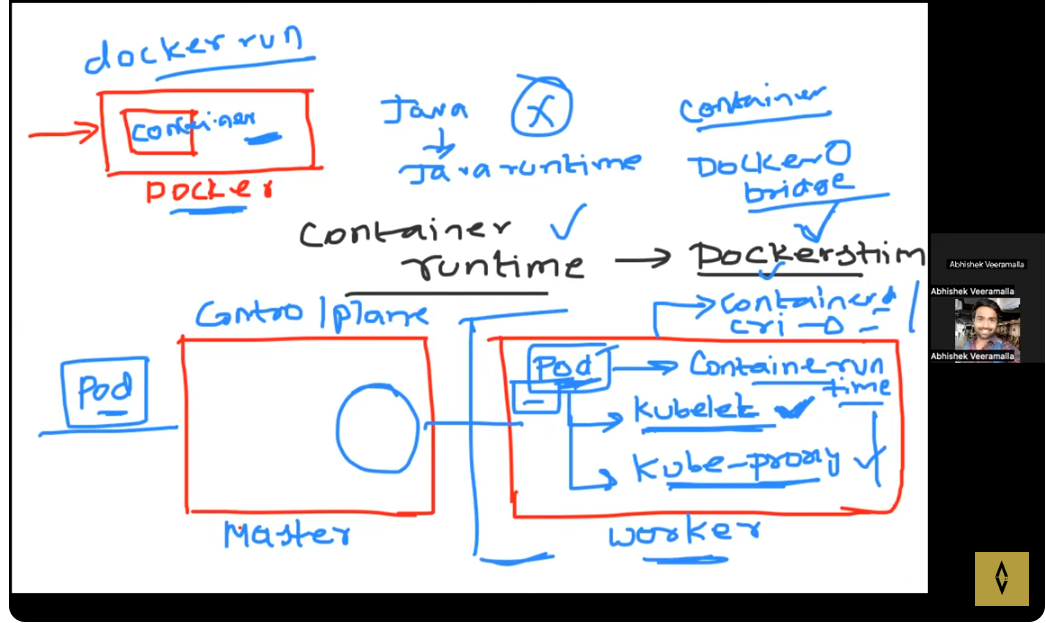 docker run
container
DOCKER
Java
Java runtime
X
container
Docker0
bridge
Container
runtime → Dockershim
containerd
cri-o
Control plane
Pod
Master
Pod → Containe run
time
Kubelet
Kube-proxy
worker
Abhishek Veeramalla
Abhishek Veeramalla
Abhishek Veeramalla